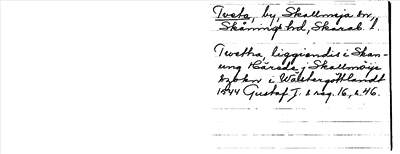 Tveta, by, Skallmeja sn,
Skånings hd, Skarab. l.
Tvetha liggiandis i Skan-
ung Härade, Skallmöije
Sockn i Wästergottlandt
1544 Gustaf I. s reg. 16, s. 46.